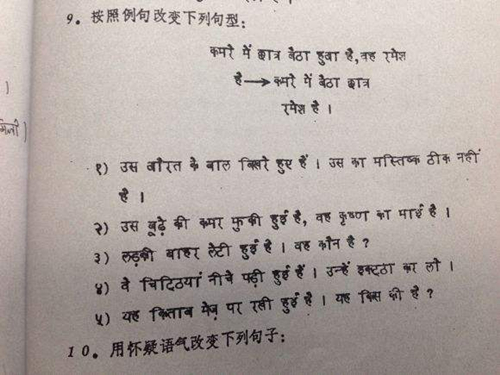 9。按照例句改变下列句型：
कमरे में छात्र बैठा हुवा है, वह रमेश
है → कमरे में बैठा छात्र
रमेश है ।
१) उस औरत के बाल बिखरे हुए हैं । उस का मस्तिष्क ठीक नहीं
है ।
२) उस बूढ़े की कमर झुकी हुई है, वह कृष्ण का भाई है ।
३) लड़की बाहर लेटी हुई है । वह कौन है ?
४) वे चिट्ठियां नीचे पड़ी हुई हैं । उन्हें इकट्ठा कर लो ।
५) यह किताब मेज़ पर रखी हुई है । यह किस की है ?
10。用怀疑语气改变下列句子：